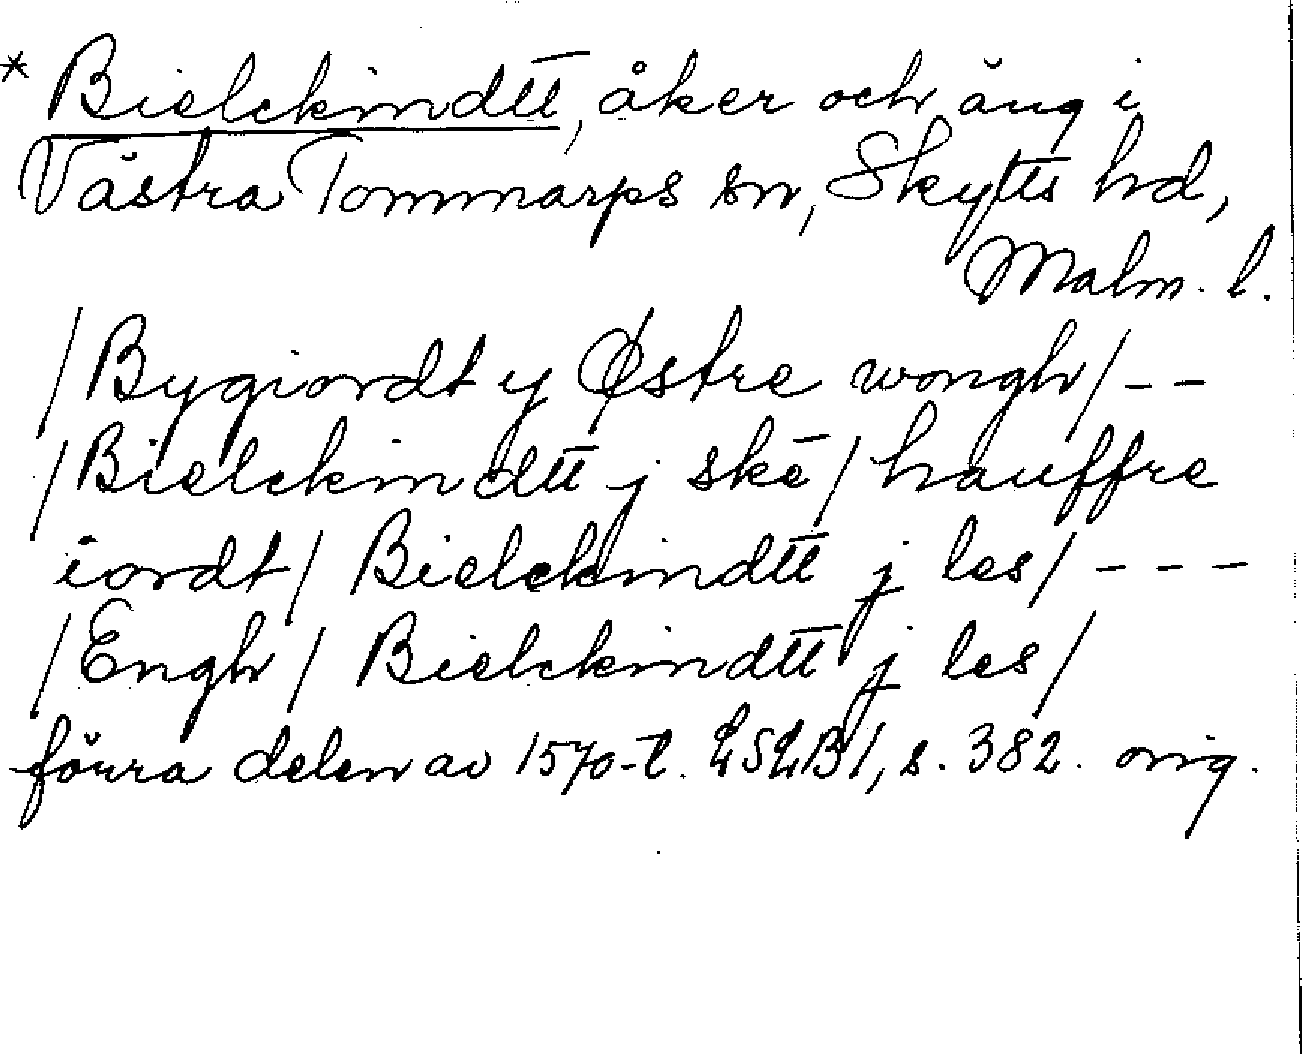 * Bielckindtt, åker och äng i
Västra Tommarps sn, Skytts hd,
Malm. l.
/Bygiordt y Østre wongh/--
/Bielckindtt j skē/ hauffre
iordt/ Bielckindtt j les/---
/Engh/ Bielckindtt j les/
förra delen av 1570-t. LSLB I, s. 382. orig.